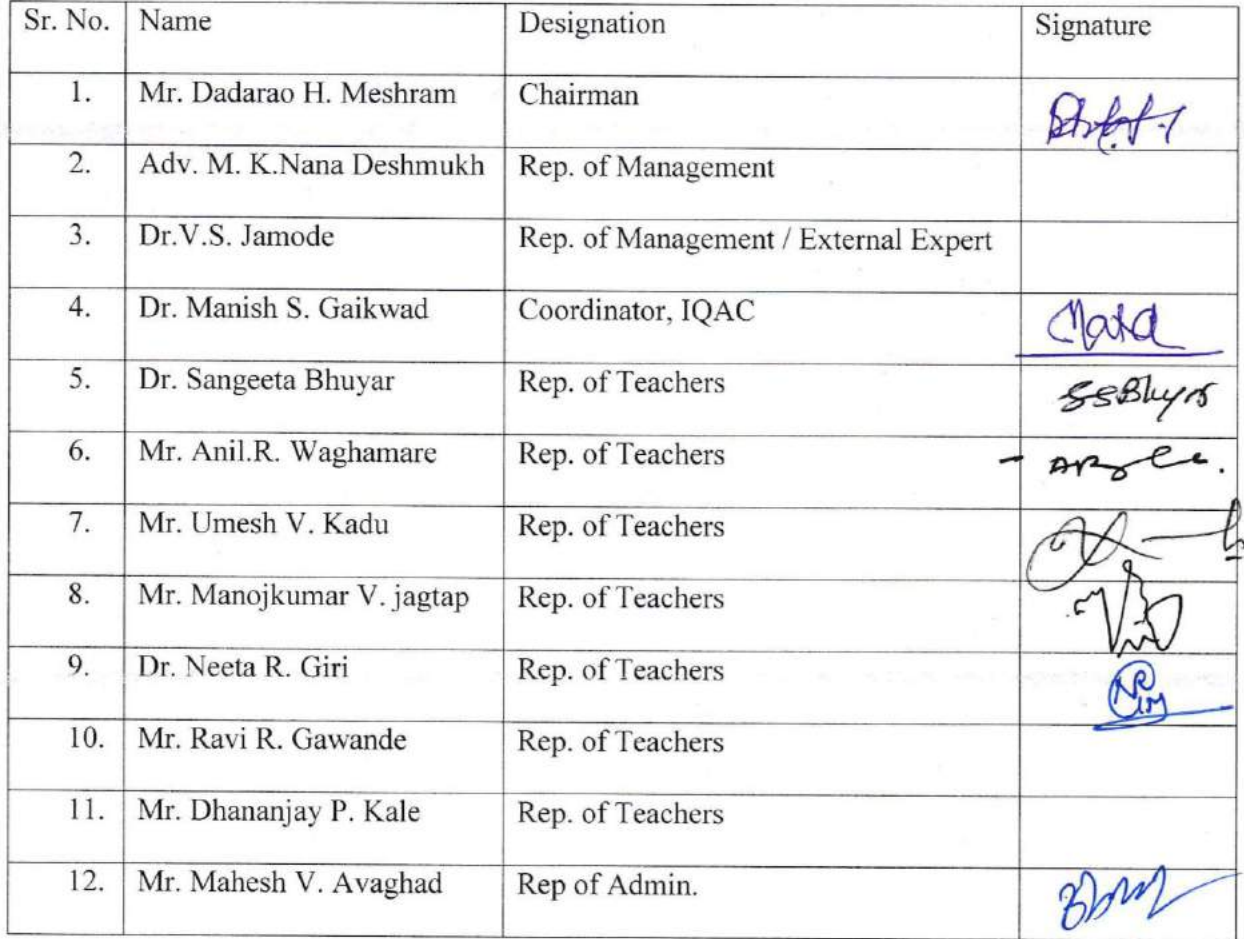 Sr. No. Name Designation Signature
1. Mr. Dadarao H. Meshram Chairman
2. Adv. M. K.Nana Deshmukh Rep. of Management
3. Dr.V.S. Jamode Rep. of Management / External Expert
4. Dr. Manish S. Gaikwad Coordinator, IQAC
5. Dr. Sangeeta Bhuyar Rep. of Teachers
6. Mr. Anil.R. Waghamare Rep. of Teachers
7. Mr. Umesh V. Kadu Rep. of Teachers
8. Mr. Manojkumar V. jagtap Rep. of Teachers
9. Dr. Neeta R. Giri Rep. of Teachers
10. Mr. Ravi R. Gawande Rep. of Teachers
11. Mr. Dhananjay P. Kale Rep. of Teachers
12. Mr. Mahesh V. Avaghad Rep of Admin.